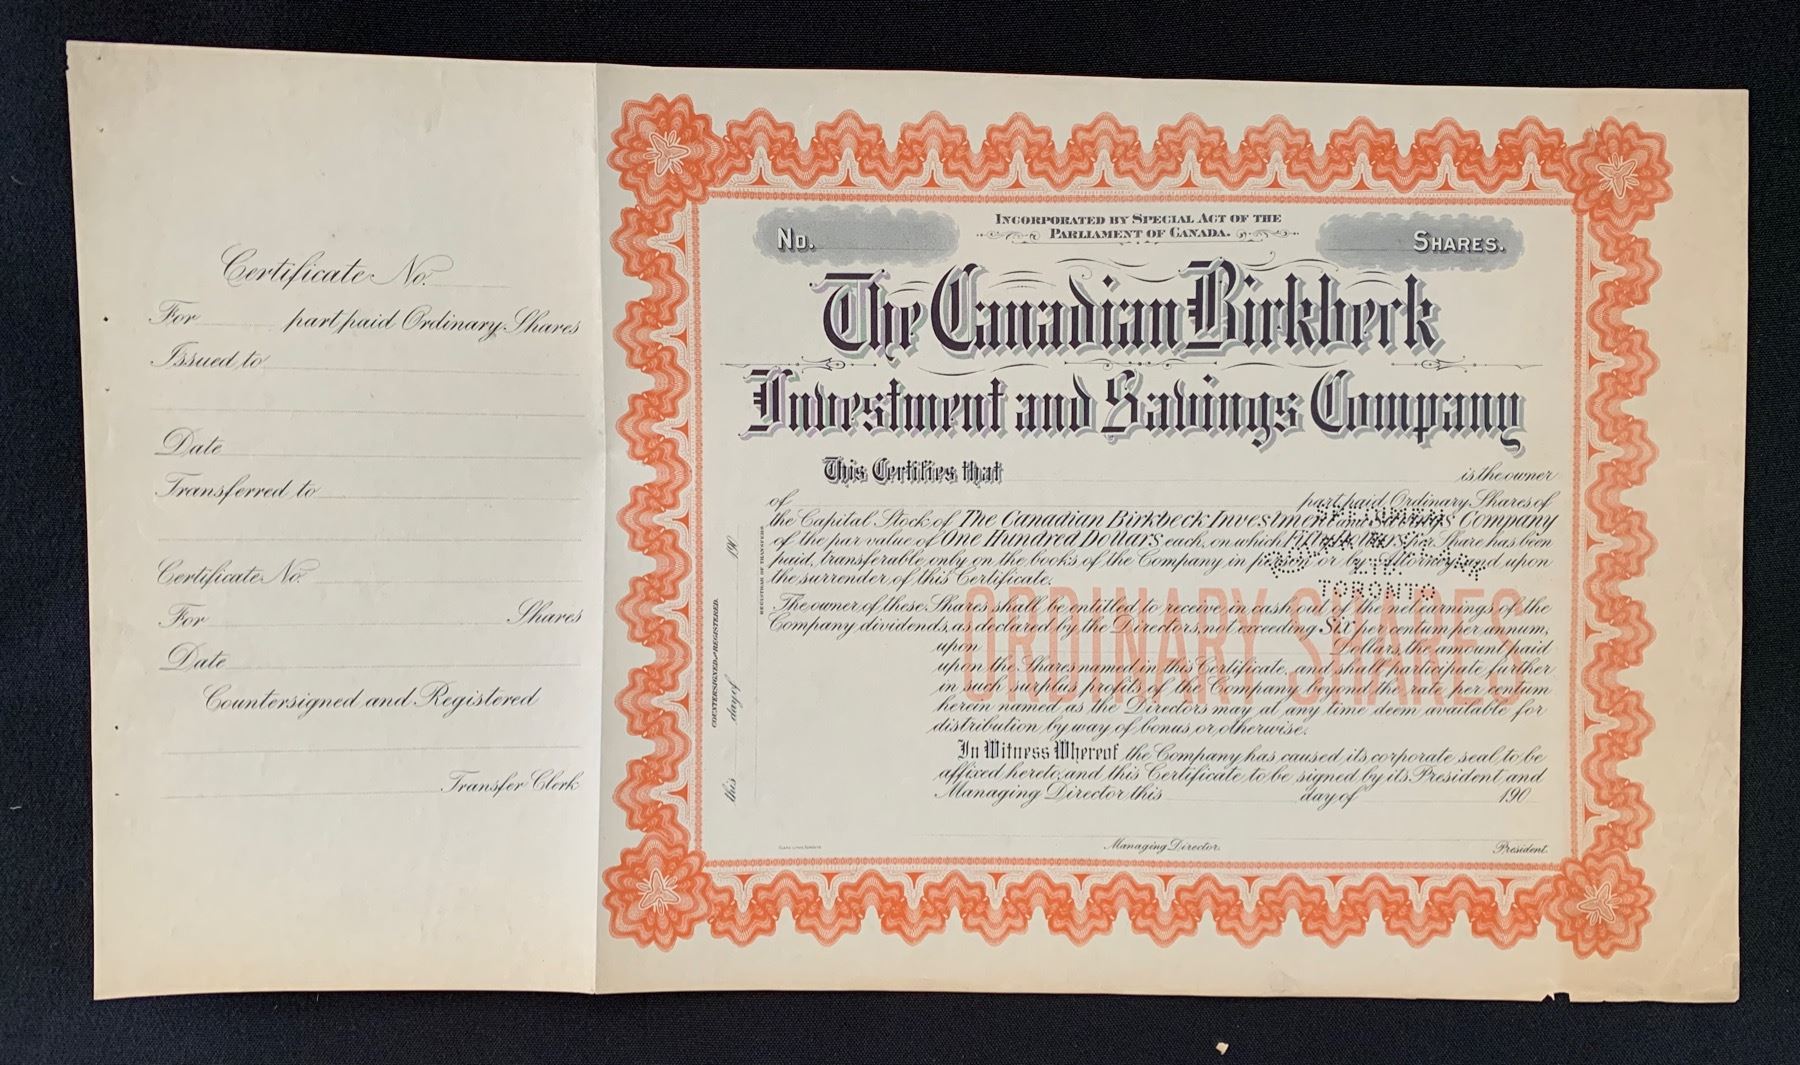 Certificate No.
For part paid Ordinary Shares
Issued to
Date
Transferred to
Certificate No.
For Shares
Date
Countersigned and Registered
Transfer Clerk
No.
INCORPORATED BY SPECIAL ACT OF THE
PARLIAMENT OF CANADA.
SHARES.
The Canadian Birkbeck
Investment and Savings Company
This Certifies that is the owner
of part paid Ordinary Shares of
the Capital Stock of The Canadian Birkbeck Investment and Savings Company
of the par value of One Hundred Dollars each, on which Fifty Dollars per Share has been
paid, transferable only on the books of the Company in person or by Attorney and upon
the surrender of this Certificate.
The owner of these Shares shall be entitled to receive in cash out of the net earnings of the
Company dividends, as declared by the Directors, not exceeding Six per centum per annum,
upon Dollars, the amount paid
upon the Shares named in this Certificate, and shall participate further
in such surplus profits of the Company beyond the rate per centum
herein named as the Directors may at any time deem available for
distribution by way of bonus or otherwise.
In Witness Whereof the Company has caused its corporate seal to be
affixed hereto, and this Certificate to be signed by its President and
Managing Director this day of 190
Managing Director. President.
ORDINARY SHARES
TORONTO
COUNTERSIGNED AND REGISTERED.
this day of 190
REGISTRAR OF TRANSFERS